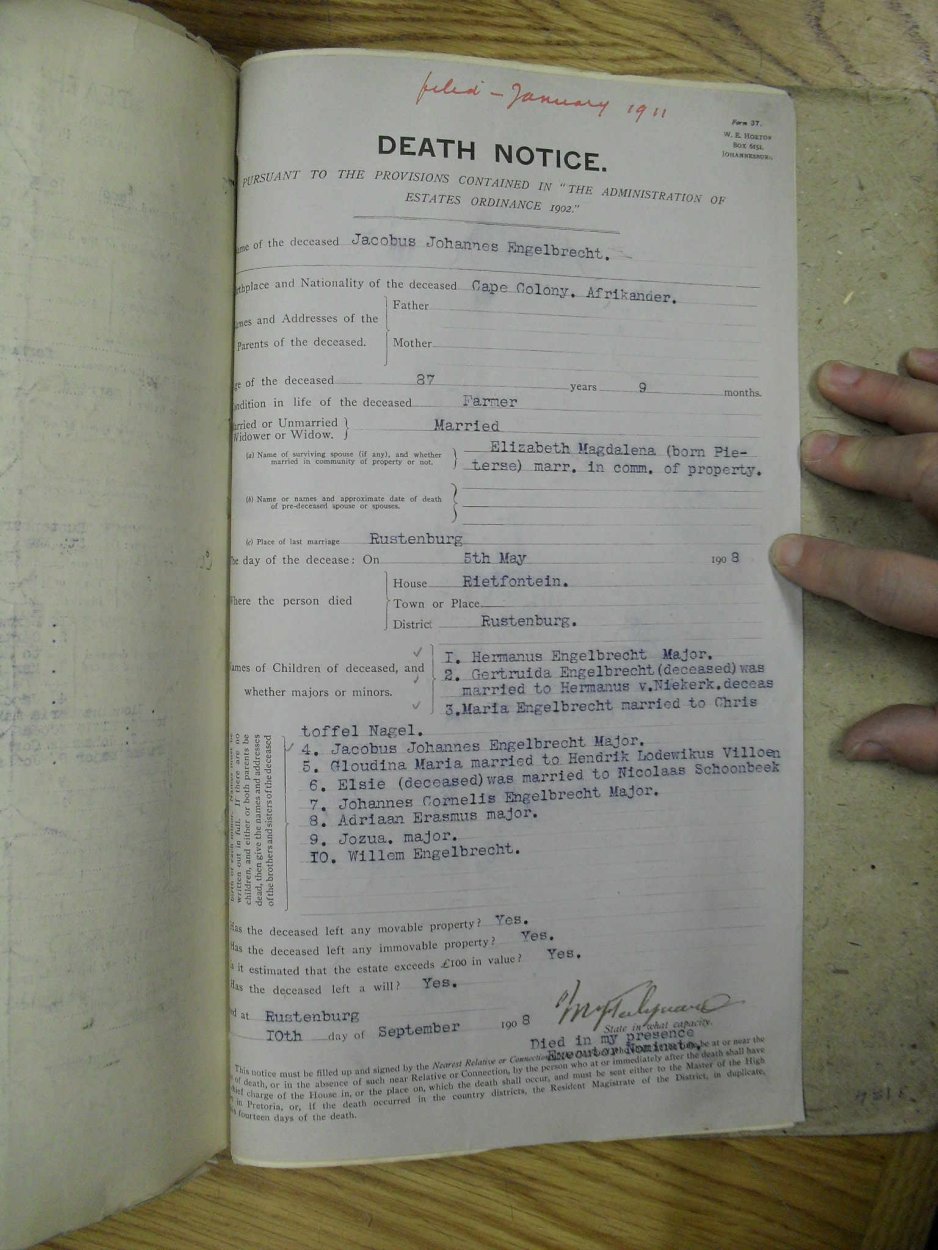 filed - January 1911
Form 37.
W. E. HORTOR
BOX 6151,
JOHANNESBURG.
DEATH NOTICE.
PURSUANT TO THE PROVISIONS CONTAINED IN "THE ADMINISTRATION OF
ESTATES ORDINANCE 1902."
me of the deceased Jacobus Johannes Engelbrecht.
rthplace and Nationality of the deceased Cape Colony. Afrikander.
Father
mes and Addresses of the
Parents of the deceased.
Mother
ge of the deceased 87 years 9 months.
ondition in life of the deceased Farmer
arried or Unmarried
Widower or Widow.
Married
(a) Name of surviving spouse (if any), and whether
married in community of property or not.
Elizabeth Magdalena (born Pie-
terse) marr. in comm. of property.
(b) Name or names and approximate date of death
of pre-deceased spouse or spouses.
(c) Place of last marriage Rustenburg
he day of the decease: On 5th May 1908
House Rietfontein.
Where the person died
Town or Place
District Rustenburg.
ames of Children of deceased, and
whether majors or minors.
1. Hermanus Engelbrecht Major.
2. Gertruida Engelbrecht(deceased)was
married to Hermanus v.Niekerk.deceas
3.Maria Engelbrecht married to Chris
toffel Nagel.
4. Jacobus Johannes Engelbrecht Major.
5. Gloudina Maria married to Hendrik Lodewikus Viljoen
6. Elsie (deceased)was married to Nicolaas Schoonbeek
7. Johannes Cornelis Engelbrecht Major.
8. Adriaan Erasmus major.
9. Jozua. major.
10. Willem Engelbrecht.
written out in full. If there are no
children, and either or both parents be
dead, then give the names and addresses
of the brothers and sisters of the deceased
Has the deceased left any movable property? Yes.
Has the deceased left any immovable property? Yes.
s it estimated that the estate exceeds £100 in value? Yes.
Has the deceased left a will? Yes.
ed at Rustenburg
10th day of September 1908
State in what capacity.
Died in my presence
Executor Nominate.
This notice must be filled up and signed by the Nearest Relative or Connection be at or near the
of death, or in the absence of such near Relative or Connection, by the person who at or immediately after the death shall have
hief charge of the House in, or the place on, which the death shall occur, and must be sent either to the Master of the High
in Pretoria, or, if the death occurred in the country districts, the Resident Magistrate of the District, in duplicate,
fourteen days of the death.